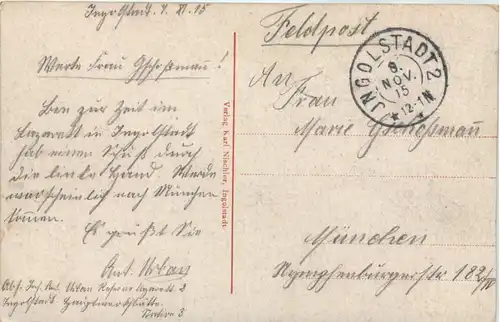 Ingolstadt, 7. XI. 15
Werte Frau Gschoßmann!
Bin zur Zeit im
Lazarett in Ingolstadt
hab einen Schuß durch
die linke Hand. Werde
warscheinlich nach München
kommen.
Es grüßt Sie
Ant. Urban
Abs. Inf. Ant. Urban Reserve Lazarett 2
Ingolstadt
Station 3
Verlag Karl Nischler, Ingolstadt.
Feldpost
INGOLSTADT 2
8.
NOV.
15
12-1 N
An
Frau
Marie Gschoßmann
München
Nymphenburgerstr 182/IV